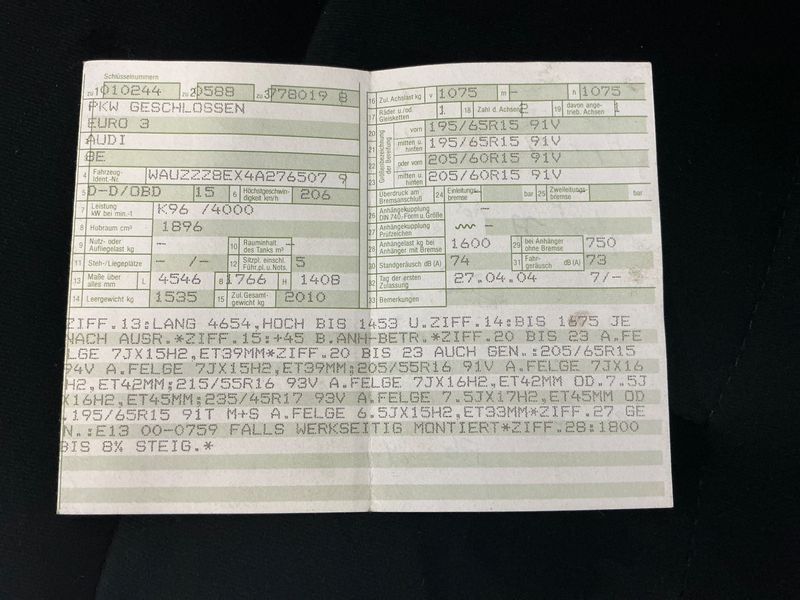 Schlüsselnummern
zu 1 010244 zu 2 0588 zu 3 778019 8
PKW GESCHLOSSEN
EURO 3
AUDI
8E
4 Fahrzeug-Ident.-Nr. WAUZZZ8EX4A276507 9
5 D-D/OBD 15 6 Höchstgeschwindigkeit km/h 206
7 Leistung kW bei min.-1 K96 /4000
8 Hubraum cm³ 1896
9 Nutz- oder Aufliegelast kg - 10 Rauminhalt des Tanks m³ -
11 Steh-/Liegeplätze - /- 12 Sitzpl. einschl. Führ.pl. u. Nots. 5
13 Maße über alles mm L 4546 B 1766 H 1408
14 Leergewicht kg 1535 15 Zul. Gesamtgewicht kg 2010
16 Zul. Achslast kg v 1075 m - h 1075
17 Räder u./od. Gleisketten 1 18 Zahl d. Achsen 2 19 davon angetrieb. Achsen 1
Größenbezeichnung der Bereifung
20 vorn 195/65R15 91V
21 mitten u. hinten 195/65R15 91V
22 oder vorn 205/60R15 91V
23 mitten u. hinten 205/60R15 91V
Überdruck am Bremsanschluß 24 Einleitungsbremse - bar 25 Zweileitungsbremse - bar
26 Anhängekupplung DIN 740.-Form u. Größe -
27 Anhängekupplung Prüfzeichen -
28 Anhängelast kg bei Anhänger mit Bremse 1600 29 bei Anhänger ohne Bremse 750
30 Standgeräusch dB (A) 74 31 Fahrgeräusch dB (A) 73
32 Tag der ersten Zulassung 27.04.04 7/-
33 Bemerkungen
ZIFF.13:LANG 4654,HOCH BIS 1453 U.ZIFF.14:BIS 1675 JE
NACH AUSR.*ZIFF.15:+45 B.ANH-BETR.*ZIFF.20 BIS 23 A.FE
LGE 7JX15H2,ET39MM*ZIFF.20 BIS 23 AUCH GEN.:205/65R15
94V A.FELGE 7JX15H2,ET39MM;205/55R16 91V A.FELGE 7JX16
H2,ET42MM;215/55R16 93V A.FELGE 7JX16H2,ET42MM OD.7.5J
X16H2,ET45MM;235/45R17 93V A.FELGE 7.5JX17H2,ET45MM OD
.195/65R15 91T M+S A.FELGE 6.5JX15H2,ET33MM*ZIFF.27 GE
N.:E13 00-0759 FALLS WERKSEITIG MONTIERT*ZIFF.28:1800
BIS 8% STEIG.*